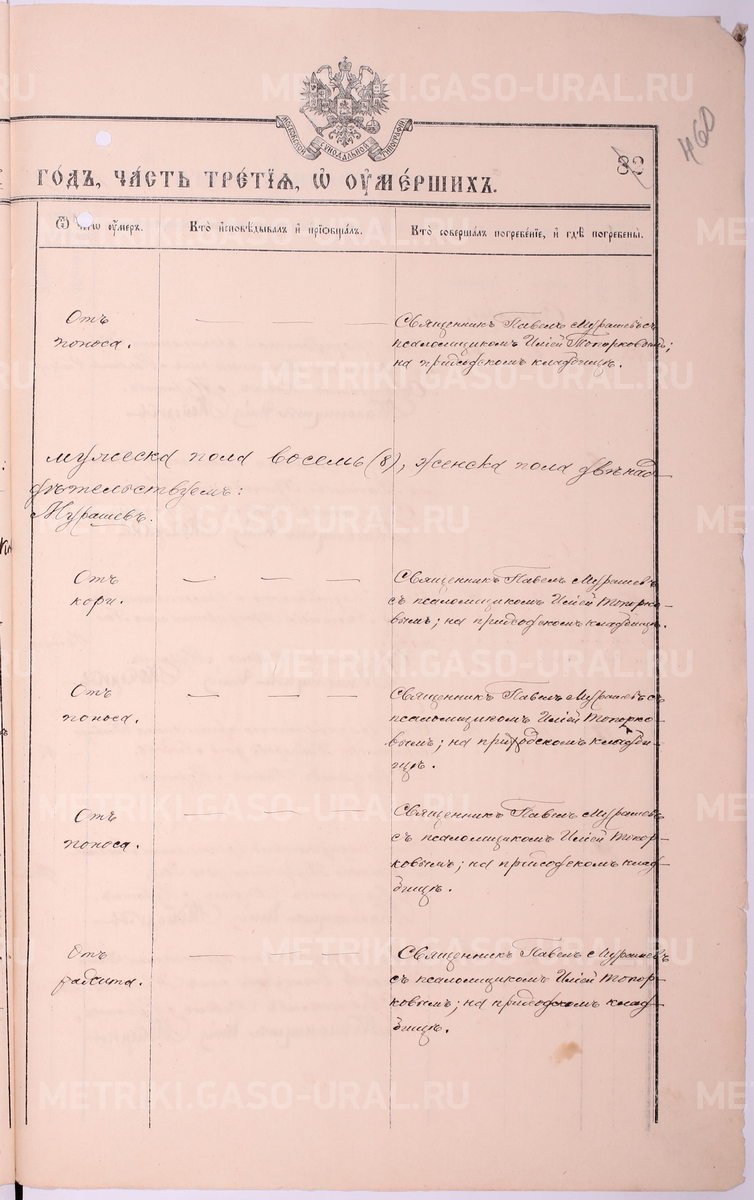 METRIKI.GASO-URAL.RU
МОСКОВСКОЙ СѴНОДАЛЬНОЙ ТИПОГРАФІИ
460
32
ГОДЪ, ЧАСТЬ ТРЕТІѦ, Ѡ ОУМЕРШИХЪ.
Ѿ ЧЕГѠ ОУМЕРЪ.
КТО ИСПОВѢДЫВАЛЪ И ПРІѠБЩАЛЪ.
КТО СОВЕРШАЛЪ ПОГРЕБЕНІЕ, И ГДѢ ПОГРЕБЕНЫ.
Отъ
поноса.
Священникъ Павелъ Мурашевъ съ
псаломщикомъ Иліей Топорковымъ;
на приходскомъ кладбищѣ.
мужеска пола восемь (8), женска пола двѣнад-
дѣтельствуемъ:
Мурашевъ.
Отъ
кори.
Священникъ Павелъ Мурашевъ
съ псаломщикомъ Иліей Топорко-
вымъ; на приходскомъ кладбищѣ.
Отъ
поноса.
Священникъ Павелъ Мурашевъ съ
псаломщикомъ Иліей Топорко-
вымъ; на приходскомъ кладби-
щѣ.
Отъ
поноса.
Священникъ Павелъ Мурашевъ
съ псаломщикомъ Иліей Топор-
ковымъ; на приходскомъ клад-
бищѣ.
Отъ
Священникъ Павелъ Мурашевъ
съ псаломщикомъ Иліей Топор-
ковымъ; на приходскомъ клад-
бищѣ.